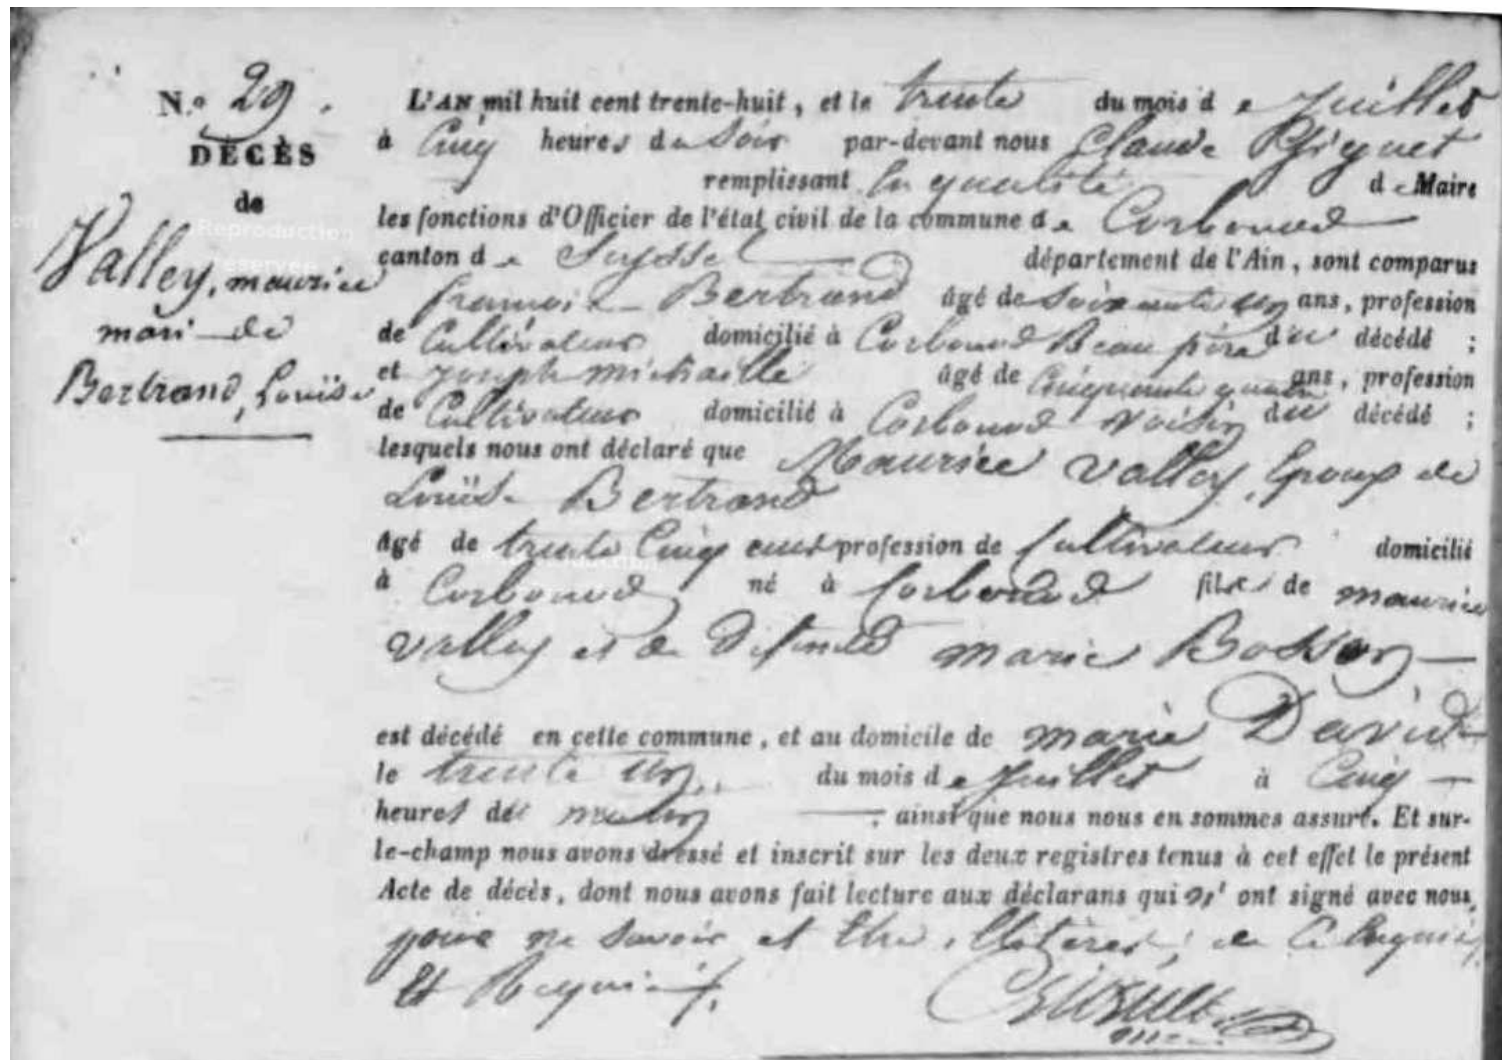 N.º 29.
DÉCÈS
de
Valley, maurice
mari de
Bertrand, Louïse
L'AN mil huit cent trente-huit, et le trente du mois d e juillet
à Cinq heures du Soir par-devant nous Claude
remplissant la qualité d e Maire
les fonctions d'Officier de l'état civil de la commune d e Corbonod
canton d e Seyssel département de l'Ain, sont comparus
francois Bertrand âgé de soixante un ans, profession
de Cultivateur domicilié à Corbonod Beau père du décédé ;
et joseph michaille âgé de Cinquante quatre ans, profession
de Cultivateur domicilié à Corbonod voisin du décédé ;
lesquels nous ont déclaré que Maurice Valley, Epoux de
Louïse Bertrand
âgé de trente Cinq ans profession de Cultivateur domicilié
à Corbonod né à Corbonod fils de maurice
valley et de défunte marie Bosson
est décédé en cette commune, et au domicile de marie David
le trente un du mois d e juillet à Cinq
heures du matin ; ainsi que nous nous en sommes assuré. Et sur-
le-champ nous avons dressé et inscrit sur les deux registres tenus à cet effet le présent
Acte de décès, dont nous avons fait lecture aux déclarans qui n' ont signé avec nous,
pour ne savoir et Etre illetérés, de Ce Enquis
Et Requis
Reproduction
réservée